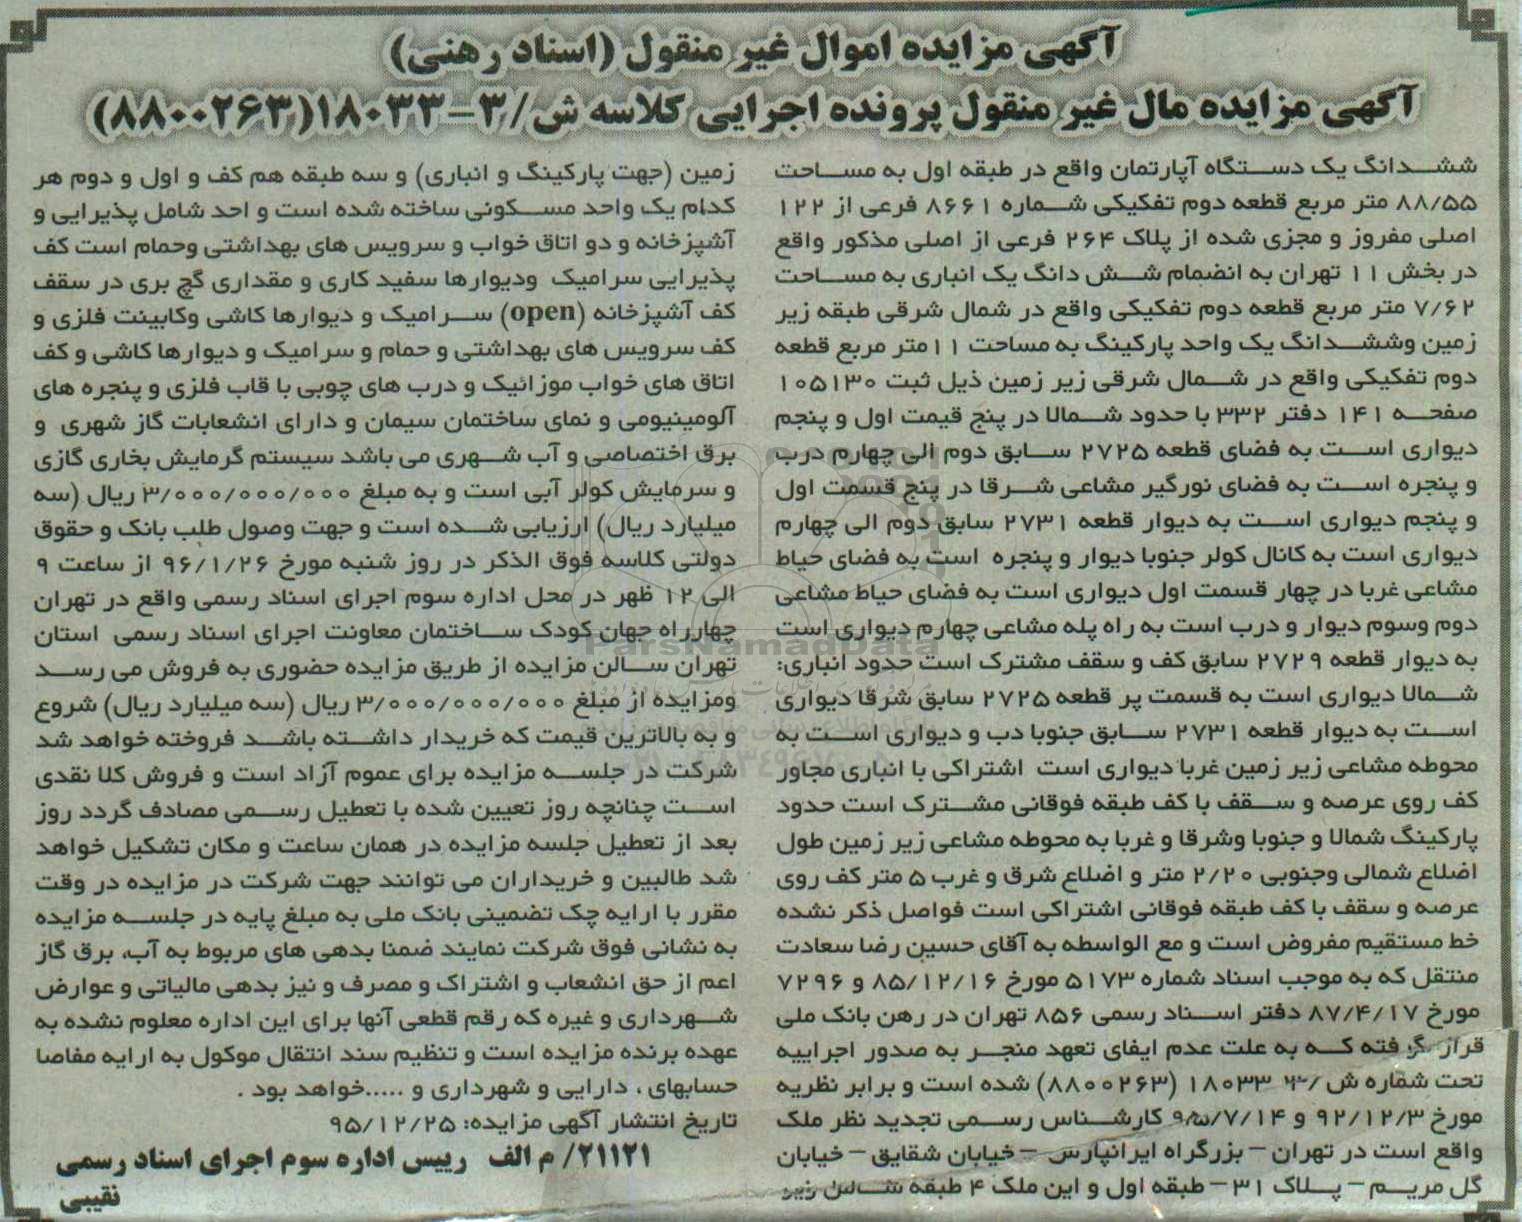 آگهی مزایده اموال غیر منقول (اسناد رهنی)
آگهی مزایده مال غیر منقول پرونده اجرایی کلاسه ش/۳-۱۸۰۳۳(۸۸۰۰۲۶۳)
ششدانگ یک دستگاه آپارتمان واقع در طبقه اول به مساحت
۸۸/۵۵ متر مربع قطعه دوم تفکیکی شماره ۸۶۶۱ فرعی از ۱۲۲
اصلی مفروز و مجزی شده از پلاک ۲۶۴ فرعی از اصلی مذکور واقع
در بخش ۱۱ تهران به انضمام شش دانگ یک انباری به مساحت
۷/۶۲ متر مربع قطعه دوم تفکیکی واقع در شمال شرقی طبقه زیر
زمین وششدانگ یک واحد پارکینگ به مساحت ۱۱متر مربع قطعه
دوم تفکیکی واقع در شمال شرقی زیر زمین ذیل ثبت ۱۰۵۱۳۰
صفحه ۱۴۱ دفتر ۳۳۲ با حدود شمالا در پنج قیمت اول و پنجم
دیواری است به فضای قطعه ۲۷۲۵ سابق دوم الی چهارم درب
و پنجره است به فضای نورگیر مشاعی شرقا در پنج قسمت اول
و پنجم دیواری است به دیوار قطعه ۲۷۳۱ سابق دوم الی چهارم
دیواری است به کانال کولر جنوبا دیوار و پنجره است به فضای حیاط
مشاعی غربا در چهار قسمت اول دیواری است به فضای حیاط مشاعی
دوم وسوم دیوار و درب است به راه پله مشاعی چهارم دیواری است
به دیوار قطعه ۲۷۲۹ سابق کف و سقف مشترک است حدود انباری:
شمالا دیواری است به قسمت پر قطعه ۲۷۲۵ سابق شرقا دیواری
است به دیوار قطعه ۲۷۳۱ سابق جنوبا دب و دیواری است به
محوطه مشاعی زیر زمین غربا دیواری است اشتراکی با انباری مجاور
کف روی عرصه و سقف با کف طبقه فوقانی مشترک است حدود
پارکینگ شمالا و جنوبا وشرقا و غربا به محوطه مشاعی زیر زمین طول
اضلاع شمالی وجنوبی ۲/۲۰ متر و اضلاع شرق و غرب ۵ متر کف روی
عرصه و سقف با کف طبقه فوقانی اشتراکی است فواصل ذکر نشده
خط مستقیم مفروض است و مع الواسطه به آقای حسین رضا سعادت
منتقل که به موجب اسناد شماره ۵۱۷۳ مورخ ۸۵/۱۲/۱۶ و ۷۲۹۶
مورخ ۸۷/۴/۱۷ دفتر اسناد رسمی ۸۵۶ تهران در رهن بانک ملی
قرار گرفته که به علت عدم ایفای تعهد منجر به صدور اجراییه
تحت شماره ش/۳ ۱۸۰۳۳ (۸۸۰۰۲۶۳) شده است و برابر نظریه
مورخ ۹۲/۱۲/۳ و ۹۵/۷/۱۴ کارشناس رسمی تجدید نظر ملک
واقع است در تهران – بزرگراه ایرانپارس – خیابان شقایق – خیابان
گل مریم – پلاک ۳۱ – طبقه اول و این ملک ۴ طبقه شامل زیر
زمین (جهت پارکینگ و انباری) و سه طبقه هم کف و اول و دوم هر
کدام یک واحد مسکونی ساخته شده است و احد شامل پذیرایی و
آشپزخانه و دو اتاق خواب و سرویس های بهداشتی وحمام است کف
پذیرایی سرامیک ودیوارها سفید کاری و مقداری گچ بری در سقف
کف آشپزخانه (open) سرامیک و دیوارها کاشی وکابینت فلزی و
کف سرویس های بهداشتی و حمام و سرامیک و دیوارها کاشی و کف
اتاق های خواب موزائیک و درب های چوبی با قاب فلزی و پنجره های
آلومینیومی و نمای ساختمان سیمان و دارای انشعابات گاز شهری و
برق اختصاصی و آب شهری می باشد سیستم گرمایش بخاری گازی
و سرمایش کولر آبی است و به مبلغ ۳/۰۰۰/۰۰۰/۰۰۰ ریال (سه
میلیارد ریال) ارزیابی شده است و جهت وصول طلب بانک و حقوق
دولتی کلاسه فوق الذکر در روز شنبه مورخ ۹۶/۱/۲۶ از ساعت ۹
الی ۱۲ ظهر در محل اداره سوم اجرای اسناد رسمی واقع در تهران
چهارراه جهان کودک ساختمان معاونت اجرای اسناد رسمی استان
تهران سالن مزایده از طریق مزایده حضوری به فروش می رسد
ومزایده از مبلغ ۳/۰۰۰/۰۰۰/۰۰۰ ریال (سه میلیارد ریال) شروع
و به بالاترین قیمت که خریدار داشته باشد فروخته خواهد شد
شرکت در جلسه مزایده برای عموم آزاد است و فروش کلا نقدی
است چنانچه روز تعیین شده با تعطیل رسمی مصادف گردد روز
بعد از تعطیل جلسه مزایده در همان ساعت و مکان تشکیل خواهد
شد طالبین و خریداران می توانند جهت شرکت در مزایده در وقت
مقرر با ارایه چک تضمینی بانک ملی به مبلغ پایه در جلسه مزایده
به نشانی فوق شرکت نمایند ضمنا بدهی های مربوط به آب، برق گاز
اعم از حق انشعاب و اشتراک و مصرف و نیز بدهی مالیاتی و عوارض
شهرداری و غیره که رقم قطعی آنها برای این اداره معلوم نشده به
عهده برنده مزایده است و تنظیم سند انتقال موکول به ارایه مفاصا
حسابهای ، دارایی و شهرداری و .....خواهد بود .
تاریخ انتشار آگهی مزایده: ۹۵/۱۲/۲۵
۲۱۱۲۱/ م الف رییس اداره سوم اجرای اسناد رسمی
نقیبی
ParsNamadData